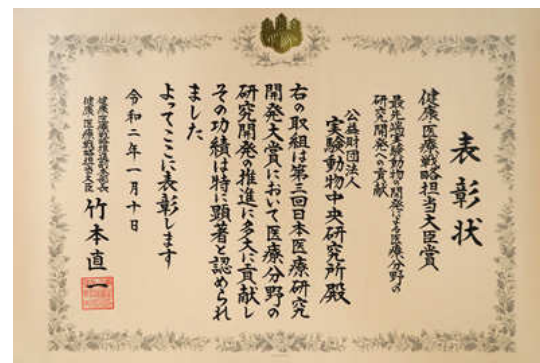 表彰状
健康・医療戦略担当大臣賞
最先端実験動物の開発による医療分野の
研究開発への貢献
公益財団法人
実験動物中央研究所殿
右の取組は第三回日本医療研究
開発大賞において医療分野の
研究開発の推進に多大に貢献し
その功績は特に顕著と認められ
ました
よってここに表彰します
令和二年一月十日
健康・医療戦略推進副本部長
健康・医療戦略担当大臣
竹本直一